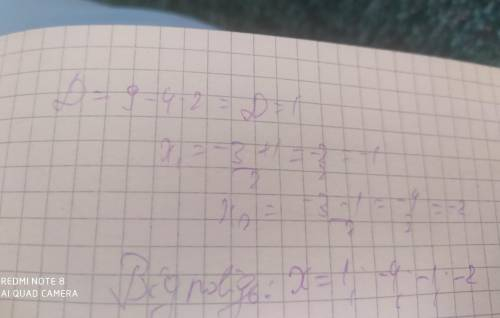 D = 9 - 4·2 = D = 1
x₁ = -3+1/2 = -2/2 = -1
x₂ = -3-1/2 = -4/2 = -2
Відповідь: x = 1; -4; -1; -2
REDMI NOTE 8
AI QUAD CAMERA